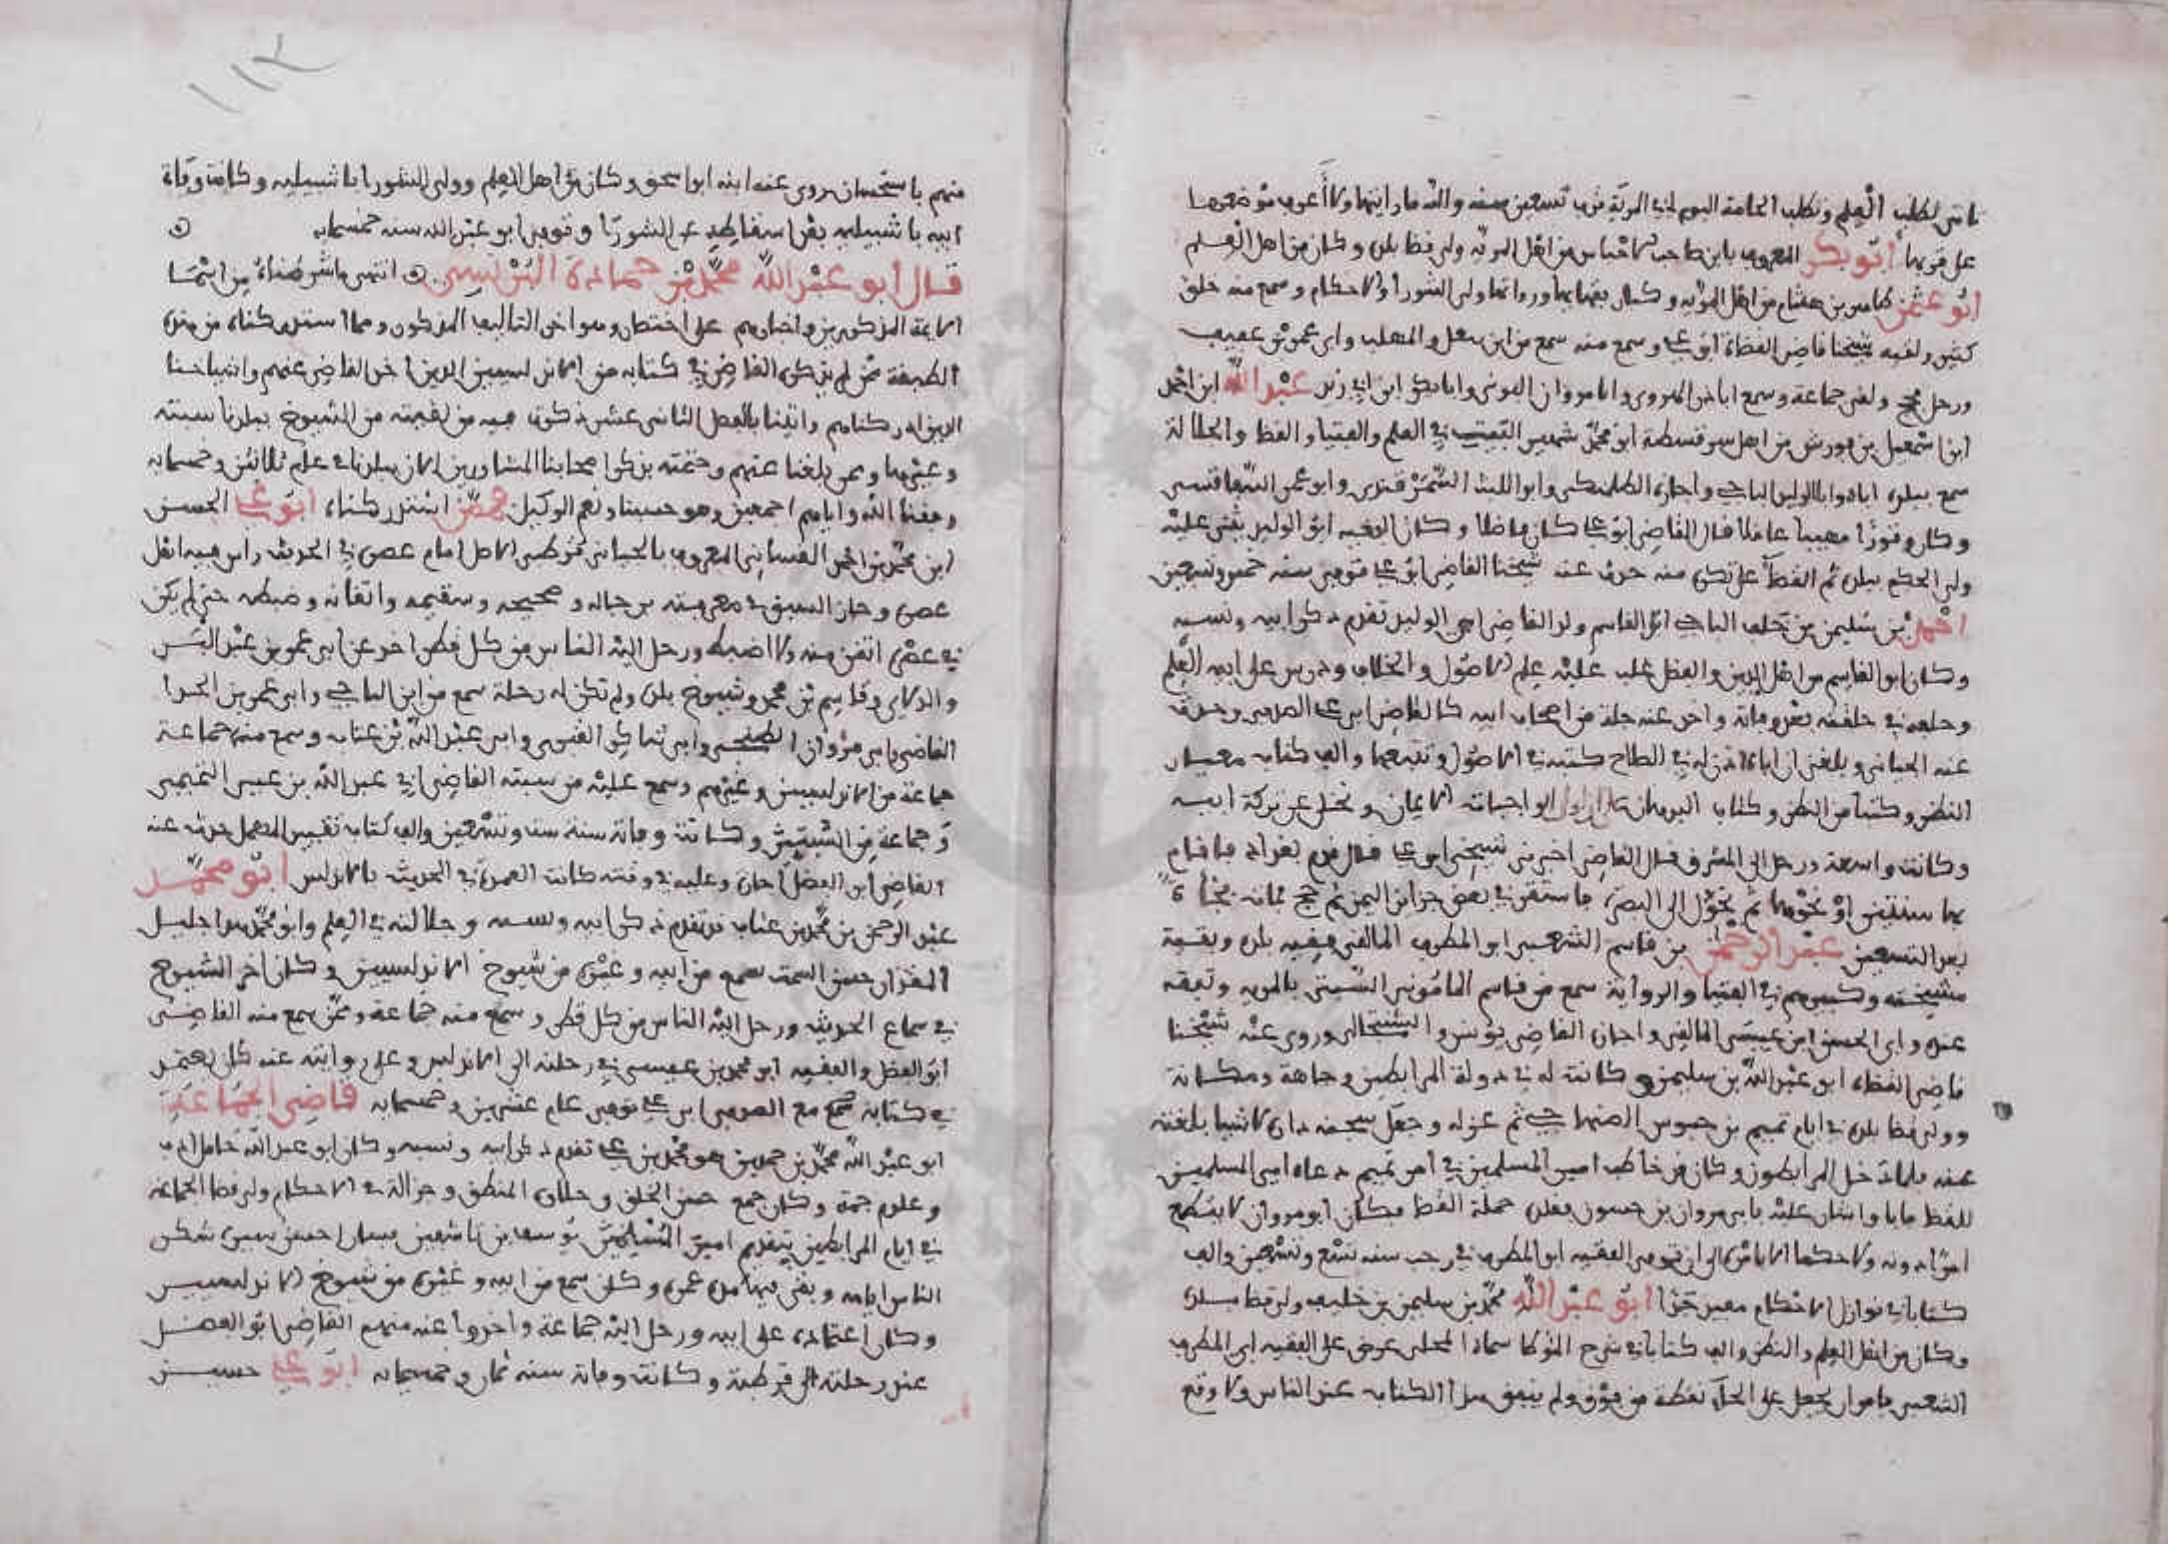 ناتي لطلب العلم وتطلب الحاجة اليوم لي المرية نرى تسعين سنة والله ما رايتها ولا أعرف موضعها
على قربها أبو بكر المعروف بابن صاحب الاحباس من اهل المرية ولي قضا بلده وكان من اهل العلم
أبو عثمن طاهر بن هشام من اهل المرية وكان بفقهايها ورواتها ولي الشورا والاحكام وسمع منه خلق
كثير ولقيه شيخنا قاضي القضاة أبو علي وسمع منه سمع من ابن سعيد والمهلب وابي عمر بن عفيف
ورحل فحج ولقي جماعة وسمع ابا ذر الهروي وابا مروان البوني وابا بكر ابن ابي زيد عبد الله ابن احمد
ابن اسمعيل بن فورتش من اهل سرقسطة أبو محمد شهير البيت في العلم والفتيا والقضا والجلالة
سمع ببلده اباه وابا الوليد الباجي واجازه الطلمنكي وابو الليث السمرقندي وابو عمر السفاقسي
وكان وقورًا مهيبا عاقلا قال القاضي أبو علي كان فاضلا وكان الفقيه أبو الوليد يثني عليه
ولي الحكم ببلده ثم القضا على تكره منه حدث عنه شيخنا القاضي أبو علي توفي سنة خمس وتسعين
أحمد بن سليمن بن خلف الباجي أبو القاسم ولد القاضي ابي الوليد تقدم ذكر ابيه ونسبه
وكان ابو القاسم من اهل الدين والفضل غلب عليه علم الاصول والخلاف ودرس على ابيه العلم
وخلفه في حلقته بعد وفاته واخذ عنه جلة من اصحاب ابيه كالقاضي ابي علي الصدفي وحدث
عنه الجياني وبلغني ان اباه اذن له في اصلاح كتبه في الاصول وتتبعها والف كتاب معيار
النظر وكتاب سر النظر وكتاب البرهان على ان اول الواجبات الايمان وتخلى عن تركة ابيه
وكانت واسعة ورحل الى المشرق قال القاضي اخبرني شيخي ابو علي قال قدم بغداد فاقام
بها سنتين أو نحوها ثم تحول الى البصرة فاستقر في بعض جزائر اليمن ثم حج فمات بجدة
بعد التسعين عبد الرحمن بن قاسم الشعبي ابو المطرف المالقي فقيه بلده وبقية
مشيخته وكبيرهم في الفتيا والرواية سمع من قاسم المأموني السبتي بالمرية وتفقه
عنده وابي الحسن ابن عيسى المالقي واجازه القاضي يونس والشنتجالي وروى عنه شيخنا
قاضي القضاة ابو عبد الله بن سليمن وكانت له في دولة المرابطين وجاهة ومكانة
وولي قضا بلده في ايام تميم بن حبوس الصنهاجي ثم عزله وجعل سجنه داره لاشيا بلغته
عنه فلما دخل المرابطون وكان قد خاطب امير المسلمين في امر تميم دعاه امير المسلمين
للقضا فابا واشار عليه بابي مروان بن حسون فقلده خطة القضا فكان أبو مروان لا يقطع
امرًا دونه ولا حكما الا باذنه الى ان توفي الفقيه ابو المطرف في رجب سنة تسع وتسعين والف
كتابا في نوازل الاحكام مفيد جدًا أبو عبد الله محمد بن سليمن بن خليفة ولي قضا بلده
وكان من اهل العلم والنظر والف كتابا في شرح الموطا سماه المحلى عرض على الفقيه ابي المطرف
الشعبي فامر ان يجعل على الحاء نقطة من فوق ولم ينفق هذا الكتاب عند الناس ولا وقع
منهم باستحسان روى عنه ابنه ابو اسحق وكان من اهل العلم وولي الشورا باشبيلية وكانت وفاة
ابيه باشبيلية بعد اسقاطه عن الشورا وتوفي ابو عبد الله سنة خمسماية
قال أبو عبد الله محمد بن حماده البرنسي انتهى ما شرطناه من اسما
الايمة المذكورين واخبارهم على اختصار وهو اخر التاليف المذكور ومما استدركناه من هذه
الطبقة ممن لم يذكره القاضي في كتابه من الاندلسيين الذين اخذ القاضي عنهم واشياخنا
الذين ادركناهم واتينا بالفصل الثاني عشر ذكرت فيه من لقيته من الشيوخ ببلدنا سبتة
وغيرها ومن بلغنا عنهم وختمته بذكر اصحابنا المشاورين الان ببلدنا في عام ثلاثين وخمسماية
رحمنا الله واياهم اجمعين وهو حسبنا ونعم الوكيل فممن استدركناه أبو علي الحسن
ابن محمد بن احمد الغساني المعروف بالجياني قرطبي الاصل امام عصره في الحديث راس فيه اهل
عصره وحاز السبق في معرفته برجاله وصحيحه وسقيمه واتقانه وضبطه حتى لم يكن
في عصره اتقن منه ولا اضبط ورحل اليه الناس من كل قطر اخذ عن ابي عمر بن عبد البر
والدلاي وقاسم بن محمد وشيوخ بلده ولم تكن له رحلة سمع من ابن الباجي وابي عمر بن الحذا
القاضي وابي مروان الطبني وابي شاكر القبري وابي عبد الله بن عتاب وسمع منه جماعة
جماعة من الاندلسيين وغيرهم وسمع عليه من سبتة القاضي ابي عبد الله بن عيسى التميمي
وجماعة من السبتيين وكانت وفاته سنة ست وتسعين والف كتاب تقييد المهمل حدث عنه
القاضي ابن الفضل اجازة وعليه في وقته كانت العمدة في الحديث بالاندلس أبو محمد
عبد الرحمن بن محمد بن عتاب قد تقدم ذكر ابيه ونسبه وجلالته في العلم وابو محمد هذا جليل
المقدار حسن السمت سمع من ابيه وغيره من شيوخ الاندلسيين وكان اخر الشيوخ
في سماع الحديث ورحل اليه الناس من كل قطر وسمع منه جماعة وممن سمع منه القاضي
أبو الفضل والفقيه ابو محمد بن عيسى في رحلته الى الاندلس وعلى روايته عنه كان يعتمد
في كتابه صحيح مع الصدفي ابي علي توفي عام عشرين وخمسماية قاضي الجماعة
ابو عبد الله محمد بن حمدين هو محمد بن علي تقدم ذكر ابيه ونسبه وكان ابو عبد الله حامل ادب
وعلوم جمة وكان جمع حسن الخلق وحلاوة المنطق وجزالة في الاحكام ولي قضا الجماعة
في ايام المرابطين بتقديم امير المسلمين يوسف بن تاشفين فسار احسن سيرة شكره
الناس ايامه وبقي فيها مدة عمره وكان سمع من ابيه وغيره من شيوخ الاندلسيين
وكان اعتماده على ابيه ورحل اليه جماعة واخذوا عنه منهم القاضي أبو الفضل
عند رحلته الى قرطبة وكانت وفاته سنة ثمان وخمسماية أبو علي حسين